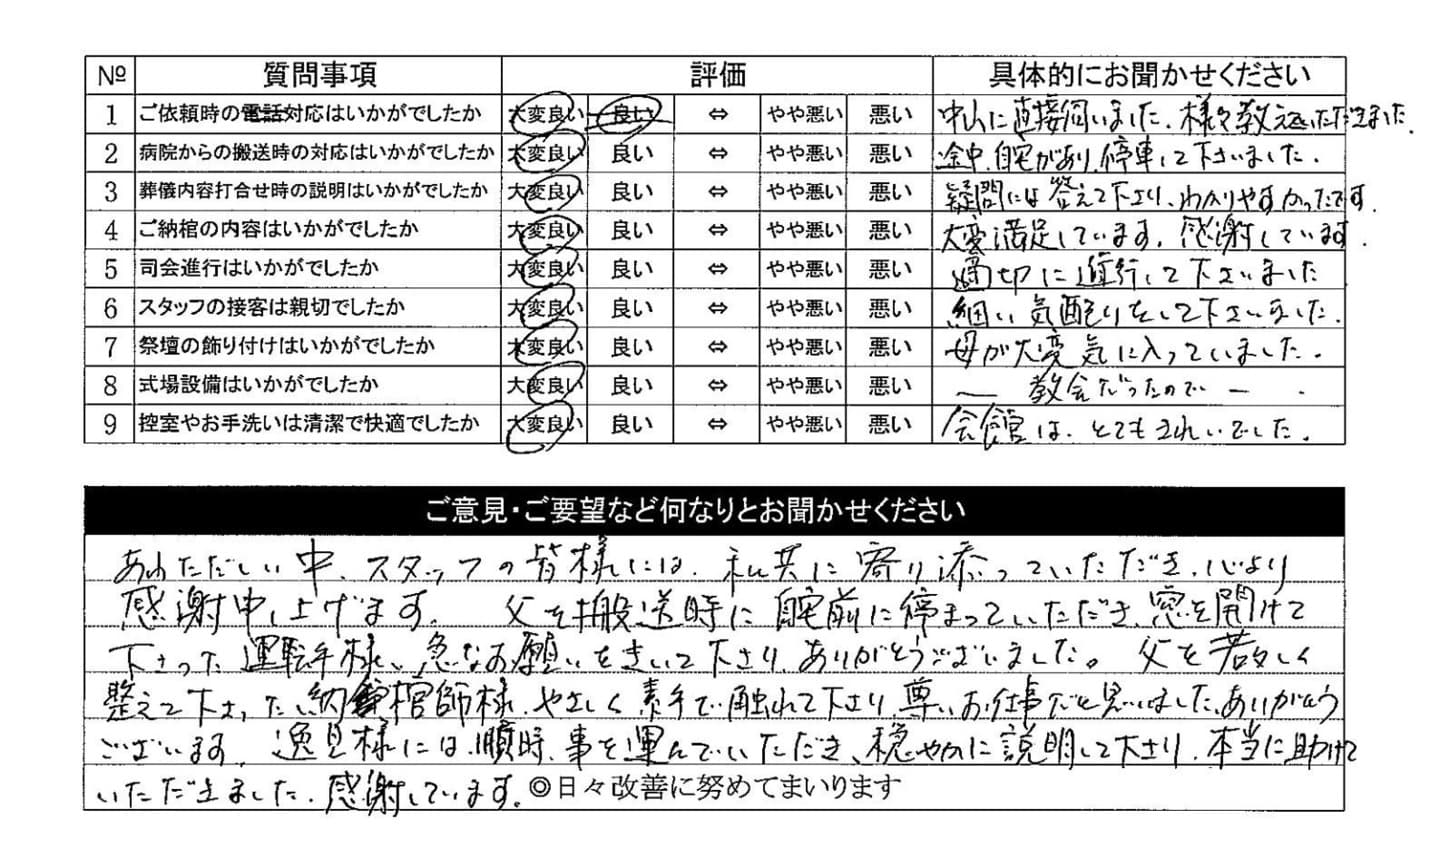 № 質問事項 評価 具体的にお聞かせください
1 ご依頼時の電話対応はいかがでしたか 大変良い 良い ⇔ やや悪い 悪い 中山に直接伺いました、様々教えていただきました.
2 病院からの搬送時の対応はいかがでしたか 大変良い 良い ⇔ やや悪い 悪い 途中、自宅があり、停車して下さいました.
3 葬儀内容打合せ時の説明はいかがでしたか 大変良い 良い ⇔ やや悪い 悪い 疑問には答えて下さり、わかりやすかったです.
4 ご納棺の内容はいかがでしたか 大変良い 良い ⇔ やや悪い 悪い 大変満足しています. 感謝しています.
5 司会進行はいかがでしたか 大変良い 良い ⇔ やや悪い 悪い 適切に進行して下さいました
6 スタッフの接客は親切でしたか 大変良い 良い ⇔ やや悪い 悪い 細い気配りをして下さいました.
7 祭壇の飾り付けはいかがでしたか 大変良い 良い ⇔ やや悪い 悪い 母が大変気に入っていました.
8 式場設備はいかがでしたか 大変良い 良い ⇔ やや悪い 悪い ― 教会だったので ― .
9 控室やお手洗いは清潔で快適でしたか 大変良い 良い ⇔ やや悪い 悪い 会館は、とてもきれいでした.
ご意見・ご要望など何なりとお聞かせください
あわただしい中、スタッフの皆様には、私共に寄り添っていただき、心より
感謝申し上げます。 父を搬送時に自宅前に停まっていただき、窓を開けて
下さった運転手様、急なお願いをきいて下さり、ありがとうございました。 父を若々しく
整えて下さった納棺師様、やさしく素手で触れて下さり、尊いお仕事だと思いました、ありがとう
ございます. 逸見様には、順時、事を運んでいただき、穏やかに説明して下さり、本当に助けて
いただきました. 感謝しています. ◎日々改善に努めてまいります